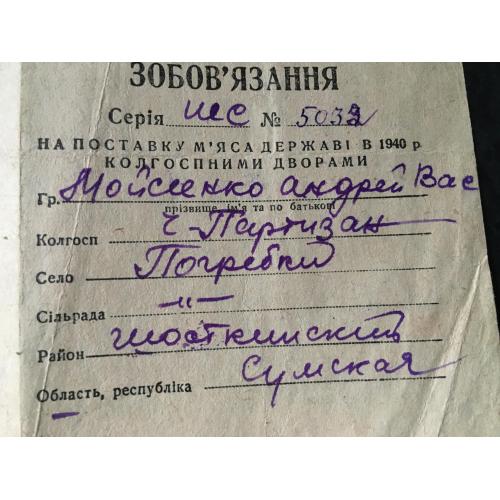 ЗОБОВ'ЯЗАННЯ
Серія шс № 5032
НА ПОСТАВКУ М'ЯСА ДЕРЖАВІ В 1940 р.
КОЛГОСПНИМИ ДВОРАМИ
Гр. Мойсиенко Андрей Вас
прізвище, ім'я та по батькові
Колгосп Ч-Партизан
Село Погребки
Сільрада —"—
Район Шосткинский
Область, республіка Сумская